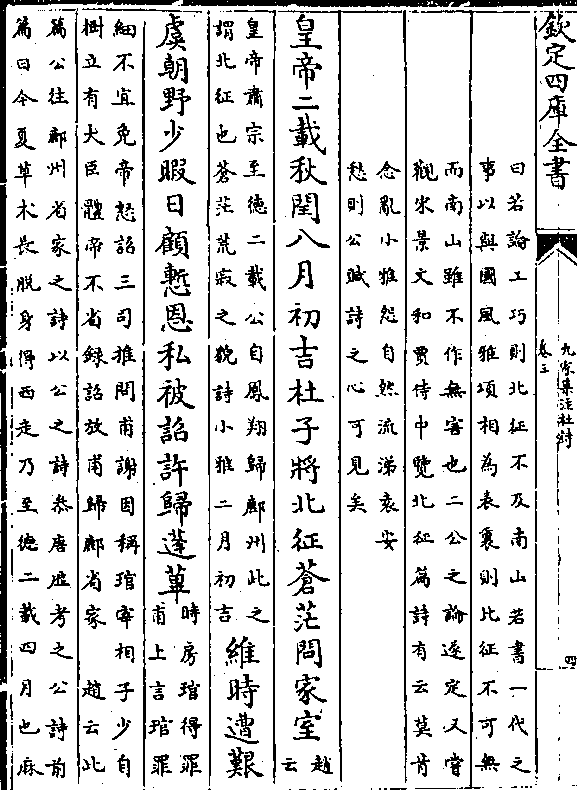 欽定四庫全書
九家集注杜詩
卷三
四
曰若論工巧則北征不及南山若書一代之
事以與國風雅頌相為表裏則北征不可無
而南山雖不作無害也二公之論遂定又嘗
觀宋景文和賈侍中覽北征篇詩有云莫肯
念亂小雅怨自然流涕袁安
愁則公賦詩之心可見矣
皇帝二載秋閏八月初吉杜子將北征蒼茫問家室趙云
皇帝肅宗至德二載公自鳳翔歸鄜州此之
謂北征也蒼茫荒寂之貌詩小雅二月初吉
維時遭艱
虞朝野少暇日顧慙恩私被詔許歸蓬蓽
時房琯得罪
甫上言琯罪
細不宜免帝怒詔三司推問甫謝因稱琯宰相子少自
樹立有大臣體帝不省録詔放甫歸鄜省家 趙云此
篇公往鄜州省家之詩以公之詩叅唐歴考之公詩前
篇曰今夏草木長脱身得西走乃至德二載四月也麻